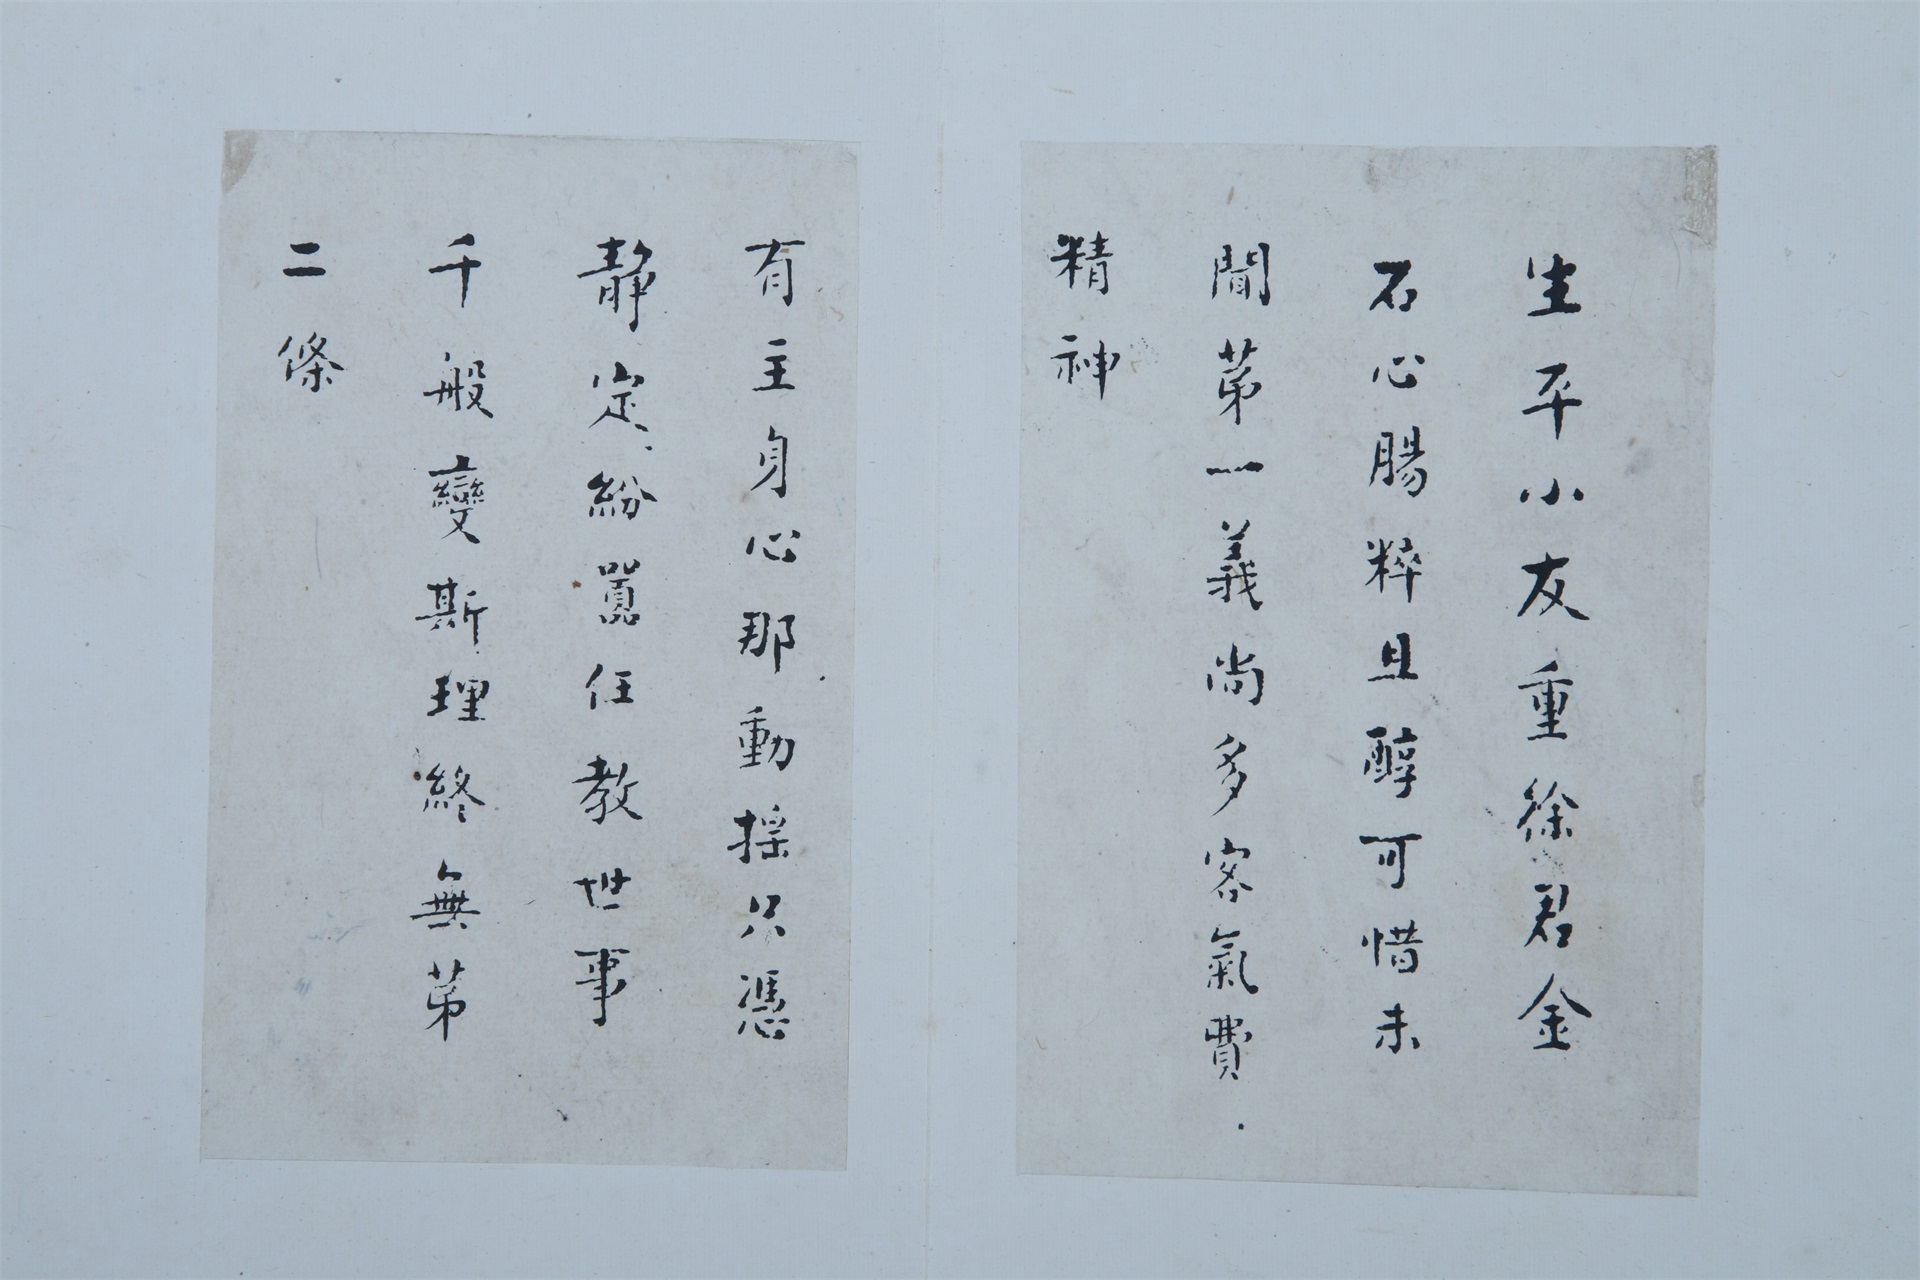 生平小友重徐君金
石心腸粹且醇可惜未
聞苐一義尚多客氣費
精神
有主身心那動摇只憑
静定紛囂任教世事
千般變斯理終無苐
二條